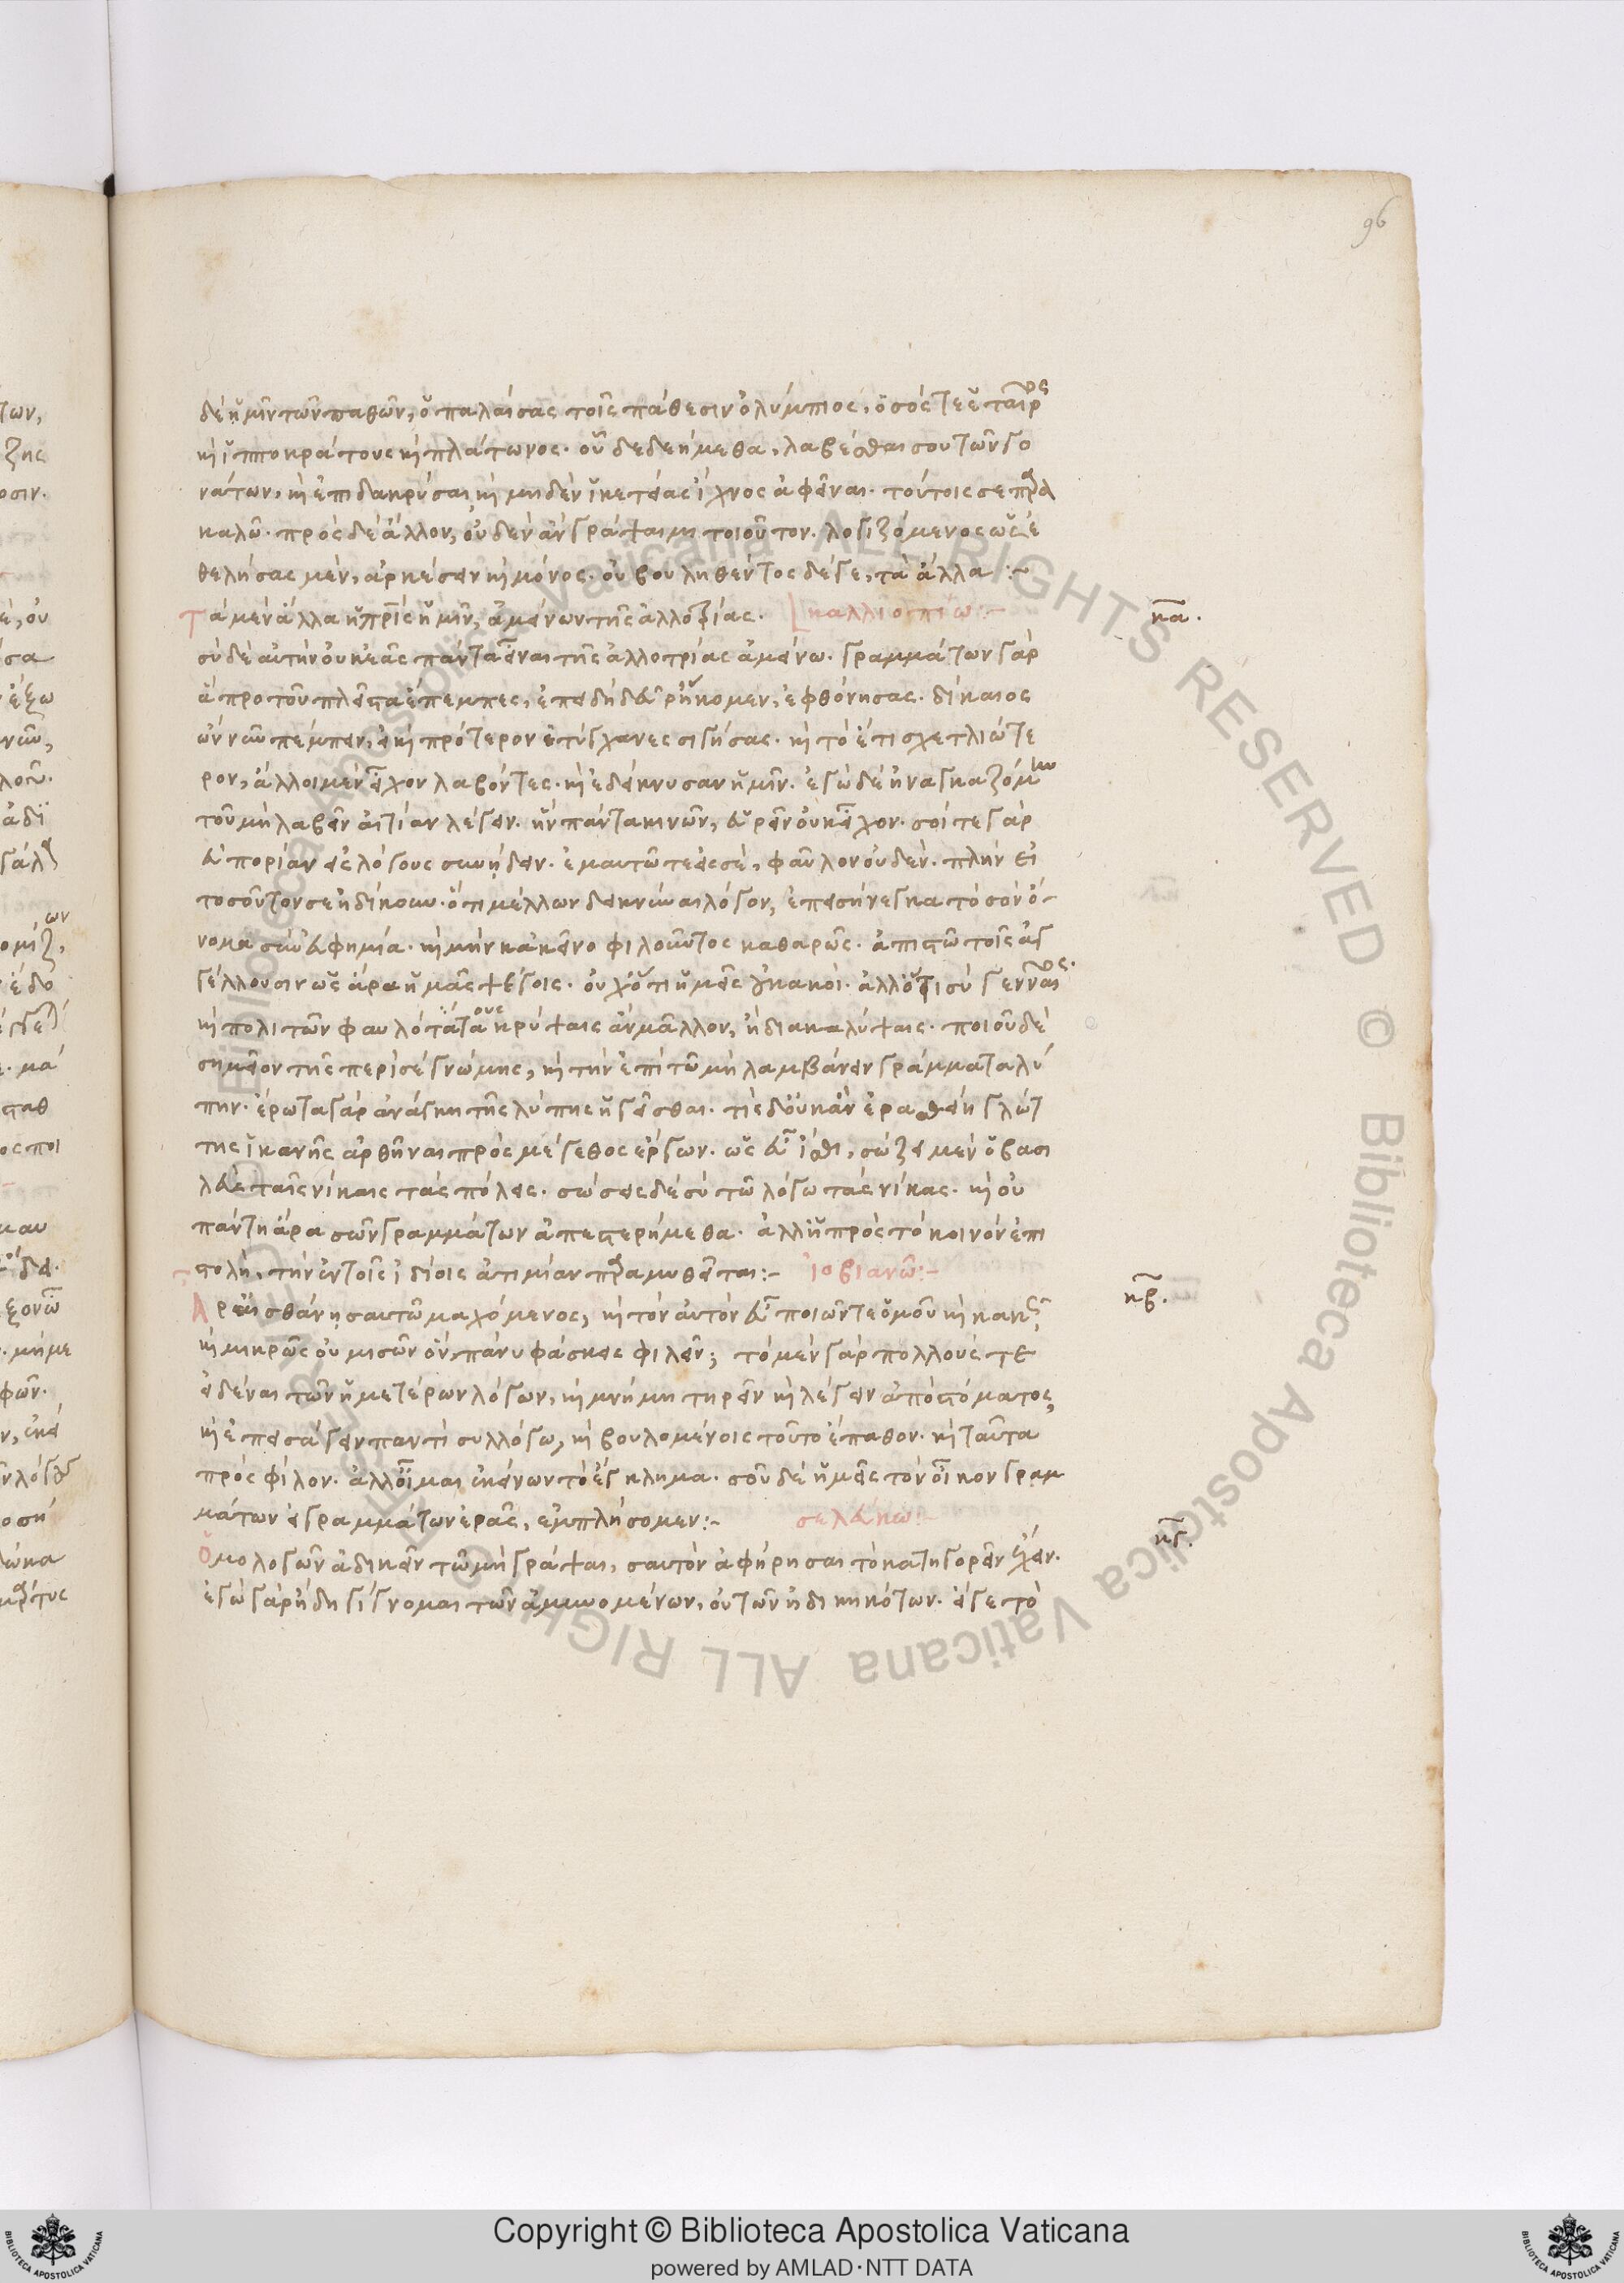 96
δὲ ἡμῖν τῶν παθῶν, ὁ παλαίσας τοῖς πάθεσιν ὀλύμπιος, ὁ σός τε ἑταῖρος
κὶ ἱπποκράτους κὶ πλάτωνος. οὗ δεδεήμεθα, λαβέσθαι σου τῶν γο
νάτων, κὶ ἐπιδακρῦσαι, κὶ μηδὲν ἱκετείας ἴχνος ἀφεῖναι. τούτοις σε παρα
καλῶ. πρὸς δὲ ἄλλον, οὐδὲν ἂν γράψαιμι τοιοῦτον. λογιζόμενος ὡς ἐ
θελήσας μὲν, ἀρκέσειν κὶ μόνος. οὐ βουληθέντος δέ γε, τὰ ἄλλα :~
Τὰ μὲν ἄλλα ἡ πατρὶς ἡμῖν, ἀμείνων τῆς ἀλλοτρίας. καλλιοπίω :~
κα.
σὺ δὲ αὐτὴν οὐκ ἐᾶς πάντα εἶναι τῆς ἀλλοτρίας ἀμείνω. γραμμάτων γὰρ
ἃ προτοῦ πλεῖστα ἔπεμπες, ἐπειδὴ δεῦρ' ἥκομεν, ἐφθόνησας. δίκαιος
ὢν νῦν πέμπειν, εἰ κὶ πρότερον ἐτύγχανες σιγήσας. κὶ τὸ ἔτι σχετλιώτε
ρον, ἄλλοι μὲν εἶχον λαβόντες. κὶ ἐδείκνυσαν ἡμῖν. ἐγὼ δὲ ἠναγκαζόμην
τοῦ μὴ λαβεῖν αἰτίαν λέγειν. ἣν πάντα κινῶν, εὑρεῖν οὐκ εἶχον. σοί τε γὰρ
εὐπορίαν εἰς λόγους συνῄδειν. ἐμαυτῶ τε εἰς σὲ, φαῦλον οὐδέν. πλὴν εἰ
τοσοῦτον σε ἠδίκουν. ὅτι μέλλων δεικνύναι λόγον, ἐπεσήνεγκα τὸ σὸν ὄ-
νομα σὺν εὐφημία. κὶ μὴν κἀκεῖνο φιλοῦντος καθαρῶς. ἀπιστῶ τοῖς ἀγ
γέλλουσιν ὡς ἄρα ἡμᾶς ψέγοις. οὐχ ὅτι ἡμεῖς οὐ κακοί. ἀλλ' ὅτι σὺ γενναῖος.
κὶ πολιτῶν φαυλότατα τοὺς κρύψαις ἂν μᾶλλον, ἢ διακαλύψαις. ποιοῦ δὲ
σημεῖον τῆς περὶ σὲ γνώμης, κὶ τὴν ἐπὶ τῶ μὴ λαμβάνειν γράμματα λύ
πην. ἔρωτα γὰρ ἀνάγκη τῆς λύπης ἡγεῖσθαι. τίς δ' οὐκ ἂν ἐρασθείη γλώτ
της ἱκανῆς ἀρθῆναι πρὸς μέγεθος ἔργων. ὡς εὖ ἴσθι, σώζει μὲν ὁ βασι
λεὺς ταῖς νίκαις τὰς πόλεις. σώσεις δὲ σὺ τῶ λόγω τὰς νίκας. κὶ οὐ
πάντη ἄρα σῶν γραμμάτων ἀπεστερήμεθα. ἀλλ' ἡ πρὸς τὸ κοινὸν ἐπι
στολὴ, τὴν ἐν τοῖς ἰδίοις ἀτιμίαν παραμυθεῖται :~ ἰοβιανῶ :~
κβ.
Ἆρ' αἰσθάνη σαυτῶ μαχόμενος, κὶ τὸν αὐτὸν εὖ ποιῶν τε ὁμοῦ κὶ κακῶς,
κὶ μικρῶς οὐ μισῶν ὃν πάνυ φάσκεις φιλεῖν; τὸ μὲν γὰρ πολλούς τε
εἰδέναι τῶν ἡμετέρων λόγων, κὶ μνήμη τηρεῖν κὶ λέγειν ἀπὸ στόματος,
κὶ ἐπεισάγειν παντὶ συλλόγω, κὶ βουλομένοις τοῦτο ἔπαθον. κὶ ταῦτα
πρὸς φίλον. ἀλλ' οἶμαι ἐκείνων τὸ ἔγκλημα. σοῦ δὲ ἡμεῖς τὸν οἶκον γραμ
μάτων εἰ γραμμάτων ἐρᾶς, ἐμπλήσομεν :~ σελεύκω :~
κγ.
Ὁμολογῶν ἀδικεῖν τῶ μὴ γράψαι, σαυτὸν ἀφήρησαι τὸ κατηγορεῖν ἔχειν.
ἐγὼ γὰρ ἤδη γίγνομαι τῶν ἀμυνομένων, οὐ τῶν ἠδικηκότων. εἴγε τὸ
Copyright © Biblioteca Apostolica Vaticana
powered by AMLAD·NTT DATA